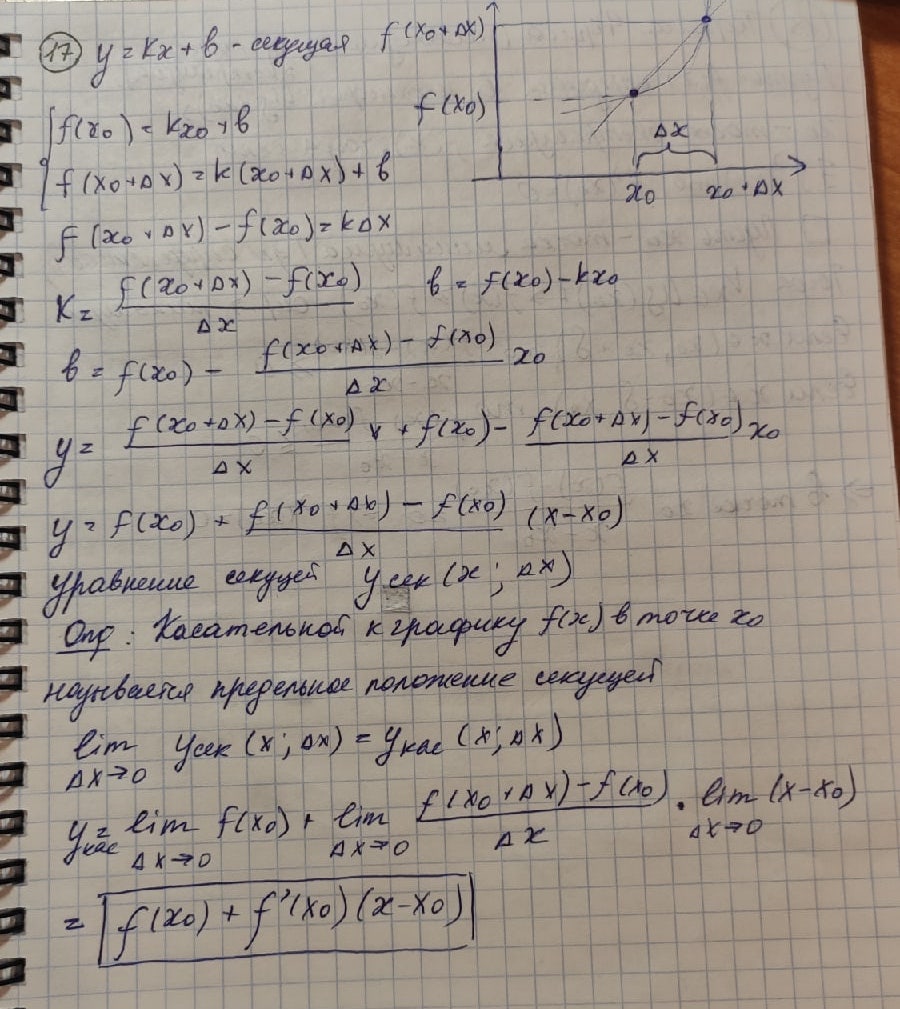 17 y = kx + b - секущая
f(x₀+Δx)
f(x₀)
Δx
x₀ x₀+Δx
f(x₀) = kx₀ + b
f(x₀+Δx) = k(x₀+Δx) + b
f(x₀+Δx) - f(x₀) = kΔx
k = (f(x₀+Δx) - f(x₀))/Δx b = f(x₀) - kx₀
b = f(x₀) - (f(x₀+Δx) - f(x₀))/Δx x₀
y = (f(x₀+Δx) - f(x₀))/Δx x + f(x₀) - (f(x₀+Δx) - f(x₀))/Δx x₀
y = f(x₀) + (f(x₀+Δx) - f(x₀))/Δx (x-x₀)
уравнение секущей yсек(x; Δx)
Опр: Касательной к графику f(x) в точке x₀
называется предельное положение секущей
lim Δx→0 yсек(x; Δx) = yкас(x; Δx)
yкас = lim Δx→0 f(x₀) + lim Δx→0 (f(x₀+Δx) - f(x₀))/Δx · lim Δx→0 (x-x₀)
= f(x₀) + f'(x₀)(x-x₀)